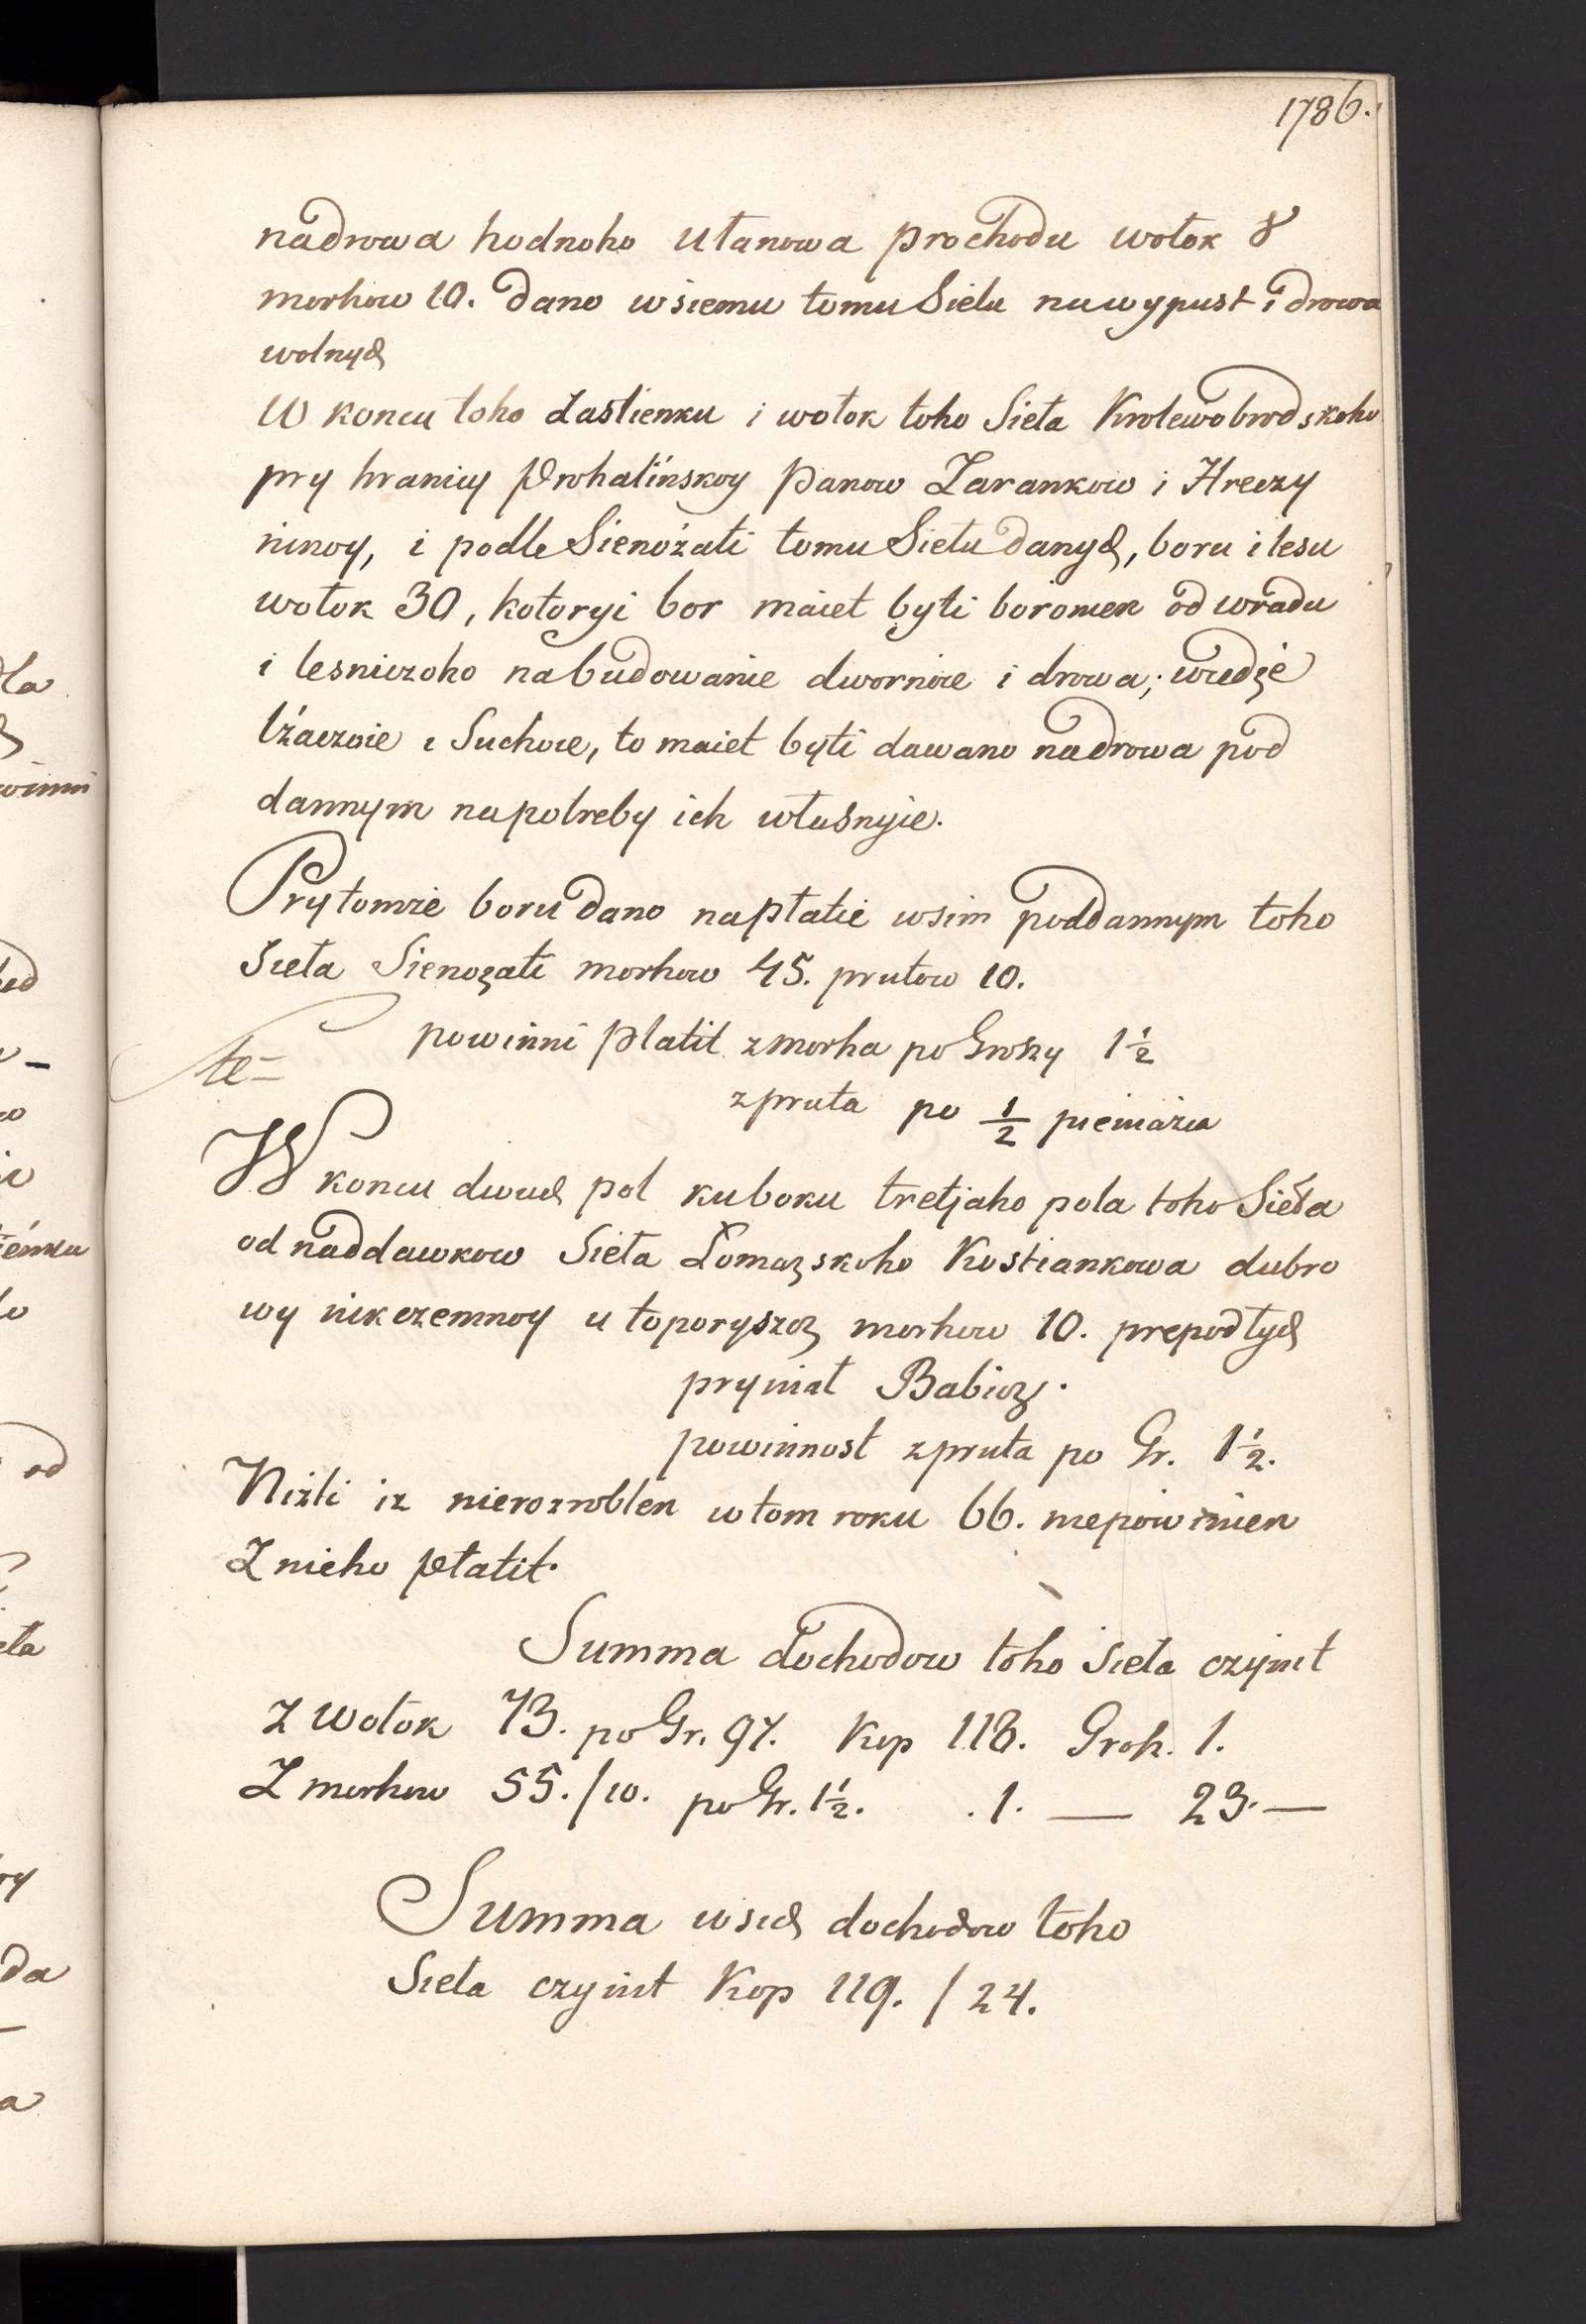 1786.
nadrowa hodnoho Ułanowa prochodu wołok 8
morhow 10. dano wsiemu tomu Siełu nawypust i drowa
wolnych
W koncu toho Zastienku i wołok toho Sieła Krolewobrodskoho
pry hranicy Prohalińskoy Panow Zarankow i Hreczy
ninoy, i podle Sienożati tomu Siełu danych, boru i lesu
wołok 30, kotoryi bor maiet byti boronien od wradu
i lesniczoho nabudowanie dwornoie i drowa; wiedże
lżaczoie i Suchoie, to maiet byti dawano nadrowa pod
dannym napotreby ich własnyie.
Prytomże boru dano napłatie wsim poddannym toho
Sieła Sienożati morhow 45. prutow 10.
powinni płatit zmorha po Groszy 1½
te=
zpruta po ½ pieniażia
W koncu dwuch pol kuboku tretjaho pola toho Sieła
od naddawkow Sieła Łomazskoho Kostiankowa dubro
wy nikczemnoy u toporyszcz morhow 10. prepodtych
pryniał Babicz.
powinnost zpruta po Gr. 1½.
Niżli iz nierozroblen wtom roku 66. niepowinien
Z nieho płatit.
Summa dochodow toho sieła czynit
Z wołok 73. po Gr. 97. Kop 118. Groh. 1.
Z morhow 55./10. po Gr. 1½. .1. — 23. —
Summa wsich dochodow toho
Sieła czynit Kop 119. / 24.